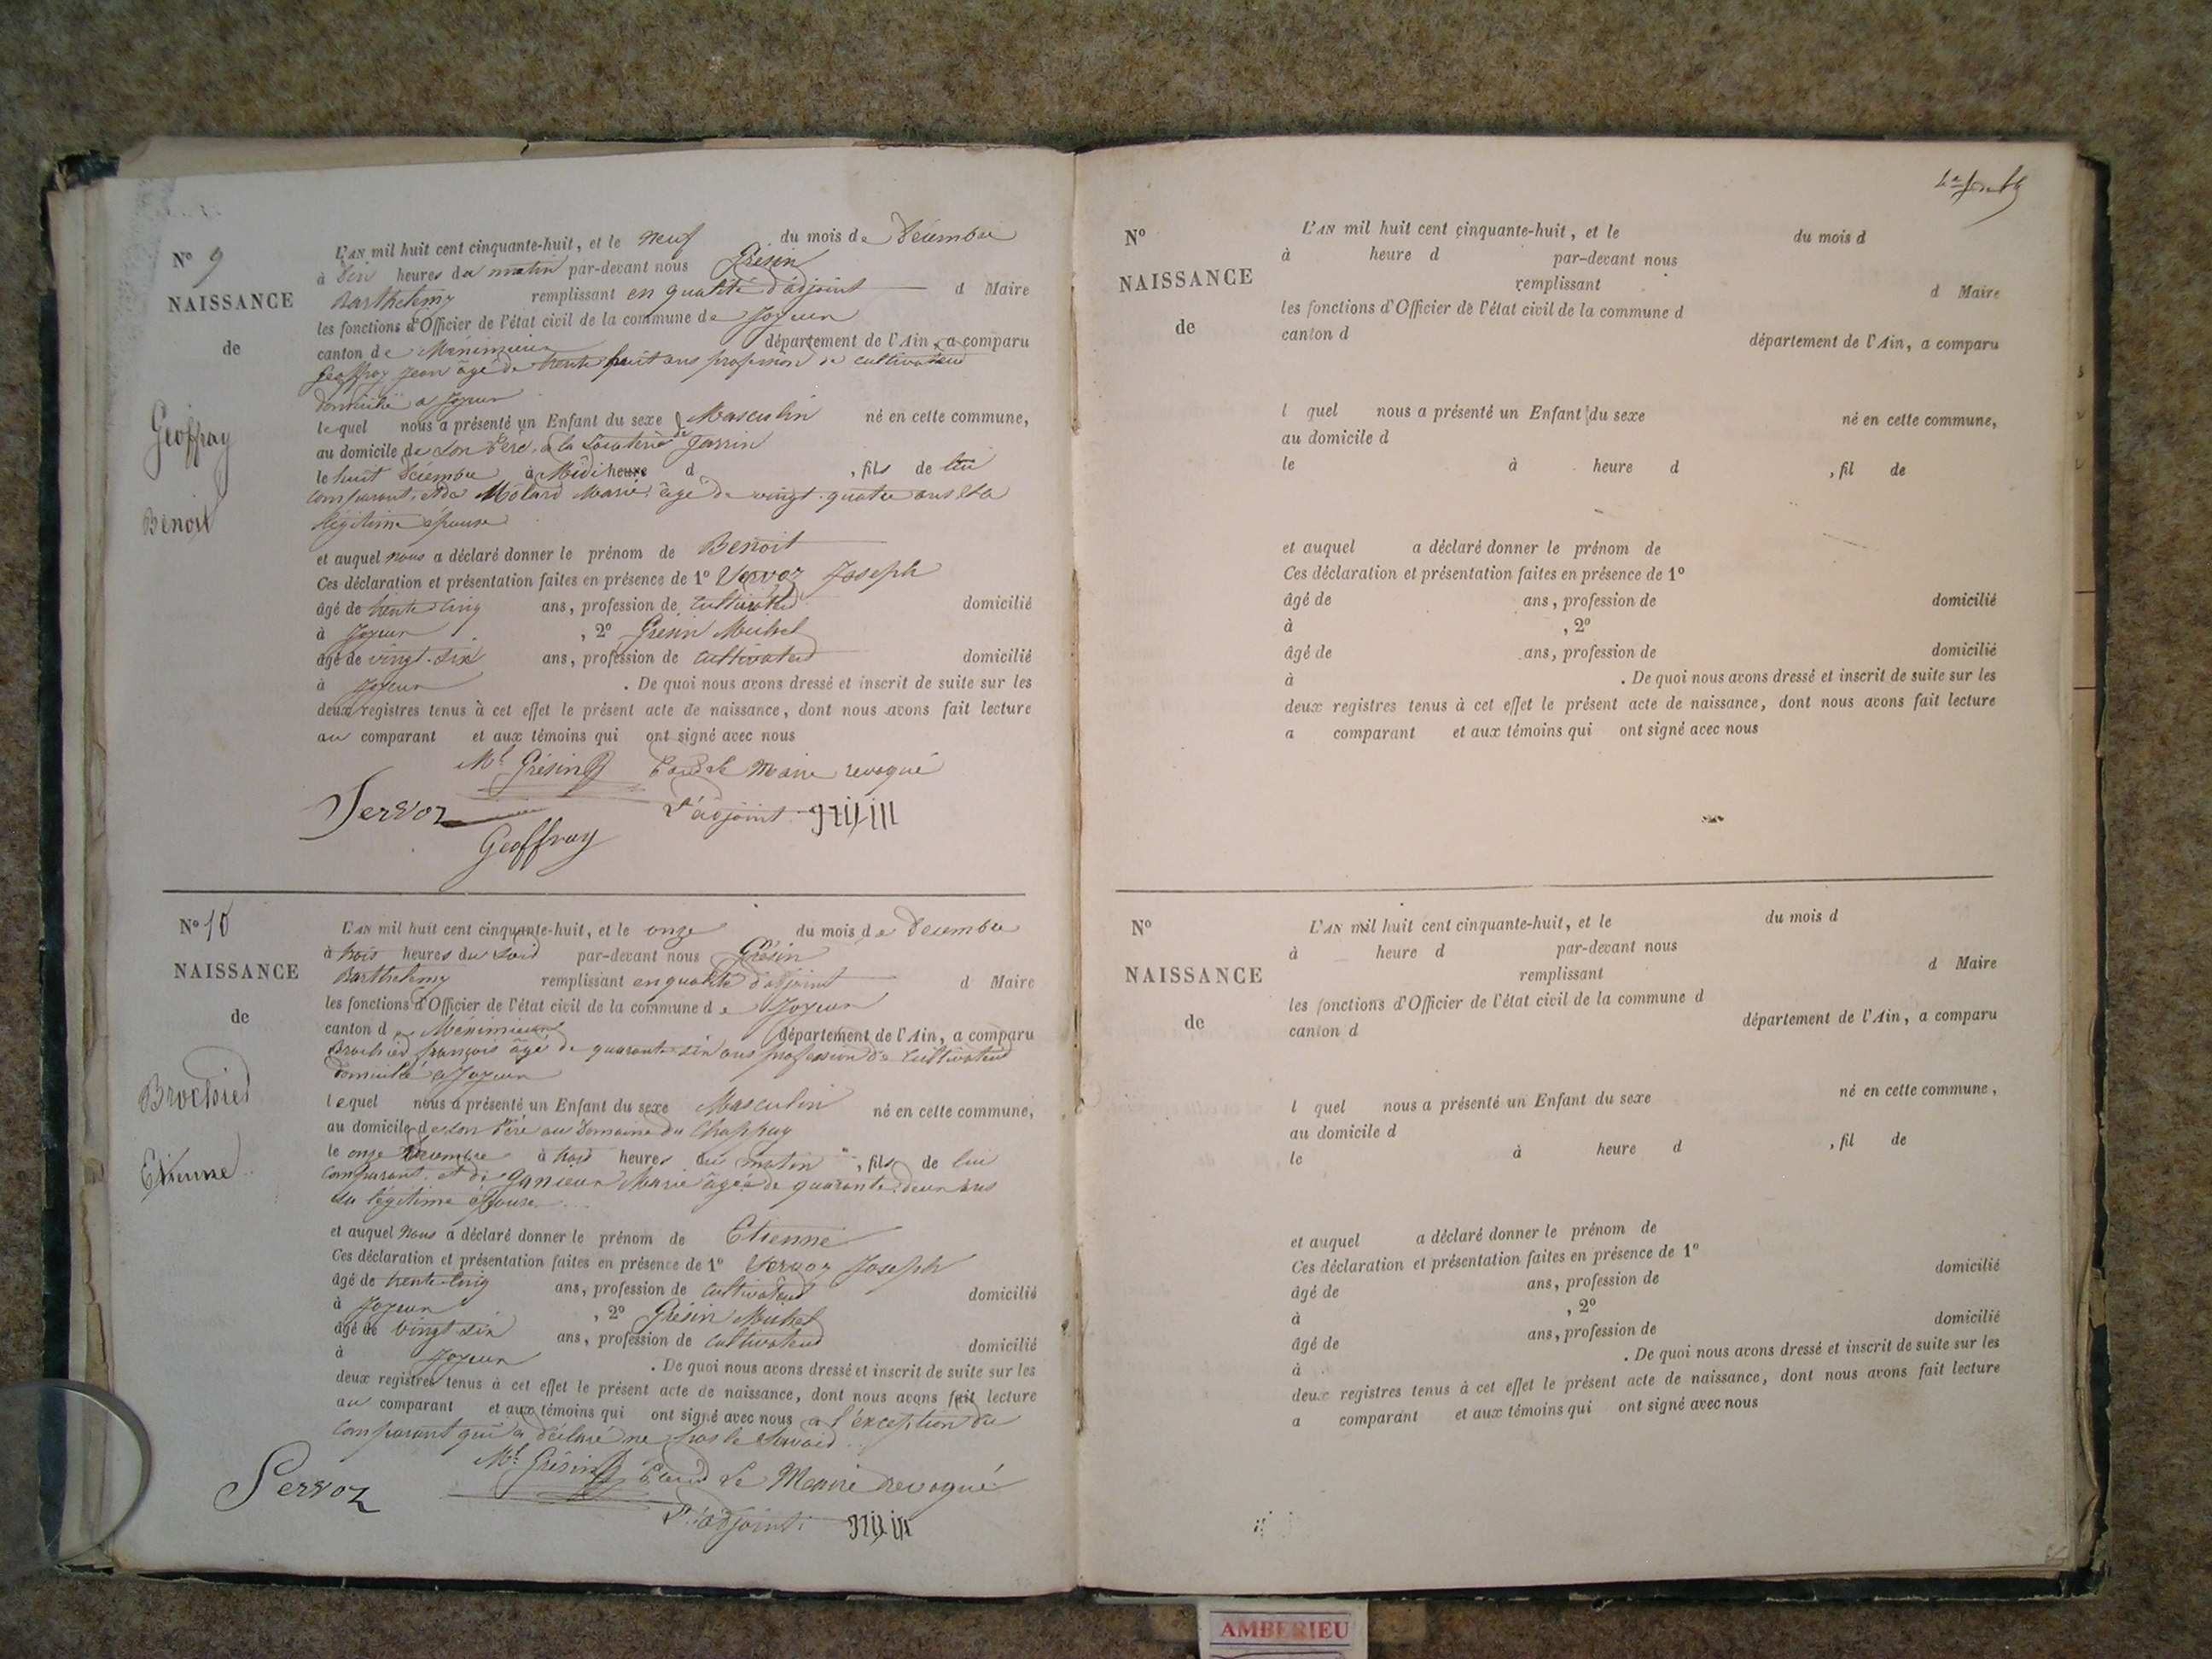 N° 9
NAISSANCE
de
Geoffray
Benoit
L'AN mil huit cent cinquante-huit, et le neuf du mois de Décembre
à dix heures du matin par-devant nous Grésin
Barthelemy remplissant en qualité d'adjoint d Maire
les fonctions d'Officier de l'état civil de la commune de Joyeux
canton de Méximieux département de l'Ain, a comparu
Geoffray Jean âgé de trente huit ans profession de cultivateur
domicilié a Joyeux
lequel nous a présenté un Enfant du sexe Masculin né en cette commune,
au domicile de son Père, a la Locaterie de Jarrin
le huit Décembre à Midi heure d , fils de lui
comparant, et de Molard Marie, âgé de vingt-quatre ans sa
légitime épouse
et auquel nous a déclaré donner le prénom de Benoit
Ces déclaration et présentation faites en présence de 1° Servoz Joseph
âgé de trente-cinq ans, profession de cultivateur domicilié
à Joyeux , 2° Grésin Michel
âgé de vingt-six ans, profession de cultivateur domicilié
à Joyeux . De quoi nous avons dressé et inscrit de suite sur les
deux registres tenus à cet effet le présent acte de naissance, dont nous avons fait lecture
au comparant et aux témoins qui ont signé avec nous
Ml Grésin Pour le Maire revoqué
Servoz L'adjoint
Geoffray
N° 10
NAISSANCE
de
Brochier
Etienne
L'AN mil huit cent cinquante-huit, et le onze du mois de Décembre
à trois heures du soir par-devant nous Grésin
Barthelemy remplissant en qualité d'adjoint d Maire
les fonctions d'Officier de l'état civil de la commune de Joyeux
canton de Méximieux département de l'Ain, a comparu
Brochier françois âgé de quarante-six ans profession de cultivateur
domicilié a Joyeux
lequel nous a présenté un Enfant du sexe Masculin né en cette commune,
au domicile de son Père au Domaine du Chappuy
le onze Décembre à trois heures du matin , fils de lui
comparant, et de Ganieux Marie âgée de quarante-deux ans
sa légitime épouse
et auquel nous a déclaré donner le prénom de Etienne
Ces déclaration et présentation faites en présence de 1° Servoz Joseph
âgé de trente-cinq ans, profession de cultivateur domicilié
à Joyeux , 2° Grésin Michel
âgé de vingt-six ans, profession de cultivateur domicilié
à Joyeux . De quoi nous avons dressé et inscrit de suite sur les
deux registres tenus à cet effet le présent acte de naissance, dont nous avons fait lecture
au comparant et aux témoins qui ont signé avec nous a l'exception du
comparant qui a déclaré ne pas le savoir
Ml Grésin Pour Le Maire revoqué
Servoz
L'adjoint
N°
NAISSANCE
de
L'AN mil huit cent cinquante-huit, et le du mois d
à heure d par-devant nous
remplissant d Maire
les fonctions d'Officier de l'état civil de la commune d
canton d département de l'Ain, a comparu
l quel nous a présenté un Enfant du sexe né en cette commune,
au domicile d
le à heure d , fil de
et auquel a déclaré donner le prénom de
Ces déclaration et présentation faites en présence de 1°
âgé de ans, profession de domicilié
à , 2°
âgé de ans, profession de domicilié
à . De quoi nous avons dressé et inscrit de suite sur les
deux registres tenus à cet effet le présent acte de naissance, dont nous avons fait lecture
a comparant et aux témoins qui ont signé avec nous
N°
NAISSANCE
de
L'AN mil huit cent cinquante-huit, et le du mois d
à heure d par-devant nous
remplissant d Maire
les fonctions d'Officier de l'état civil de la commune d
canton d département de l'Ain, a comparu
l quel nous a présenté un Enfant du sexe né en cette commune,
au domicile d
le à heure d , fil de
et auquel a déclaré donner le prénom de
Ces déclaration et présentation faites en présence de 1°
âgé de ans, profession de domicilié
à , 2°
âgé de ans, profession de domicilié
à . De quoi nous avons dressé et inscrit de suite sur les
deux registres tenus à cet effet le présent acte de naissance, dont nous avons fait lecture
a comparant et aux témoins qui ont signé avec nous
AMBERIEU